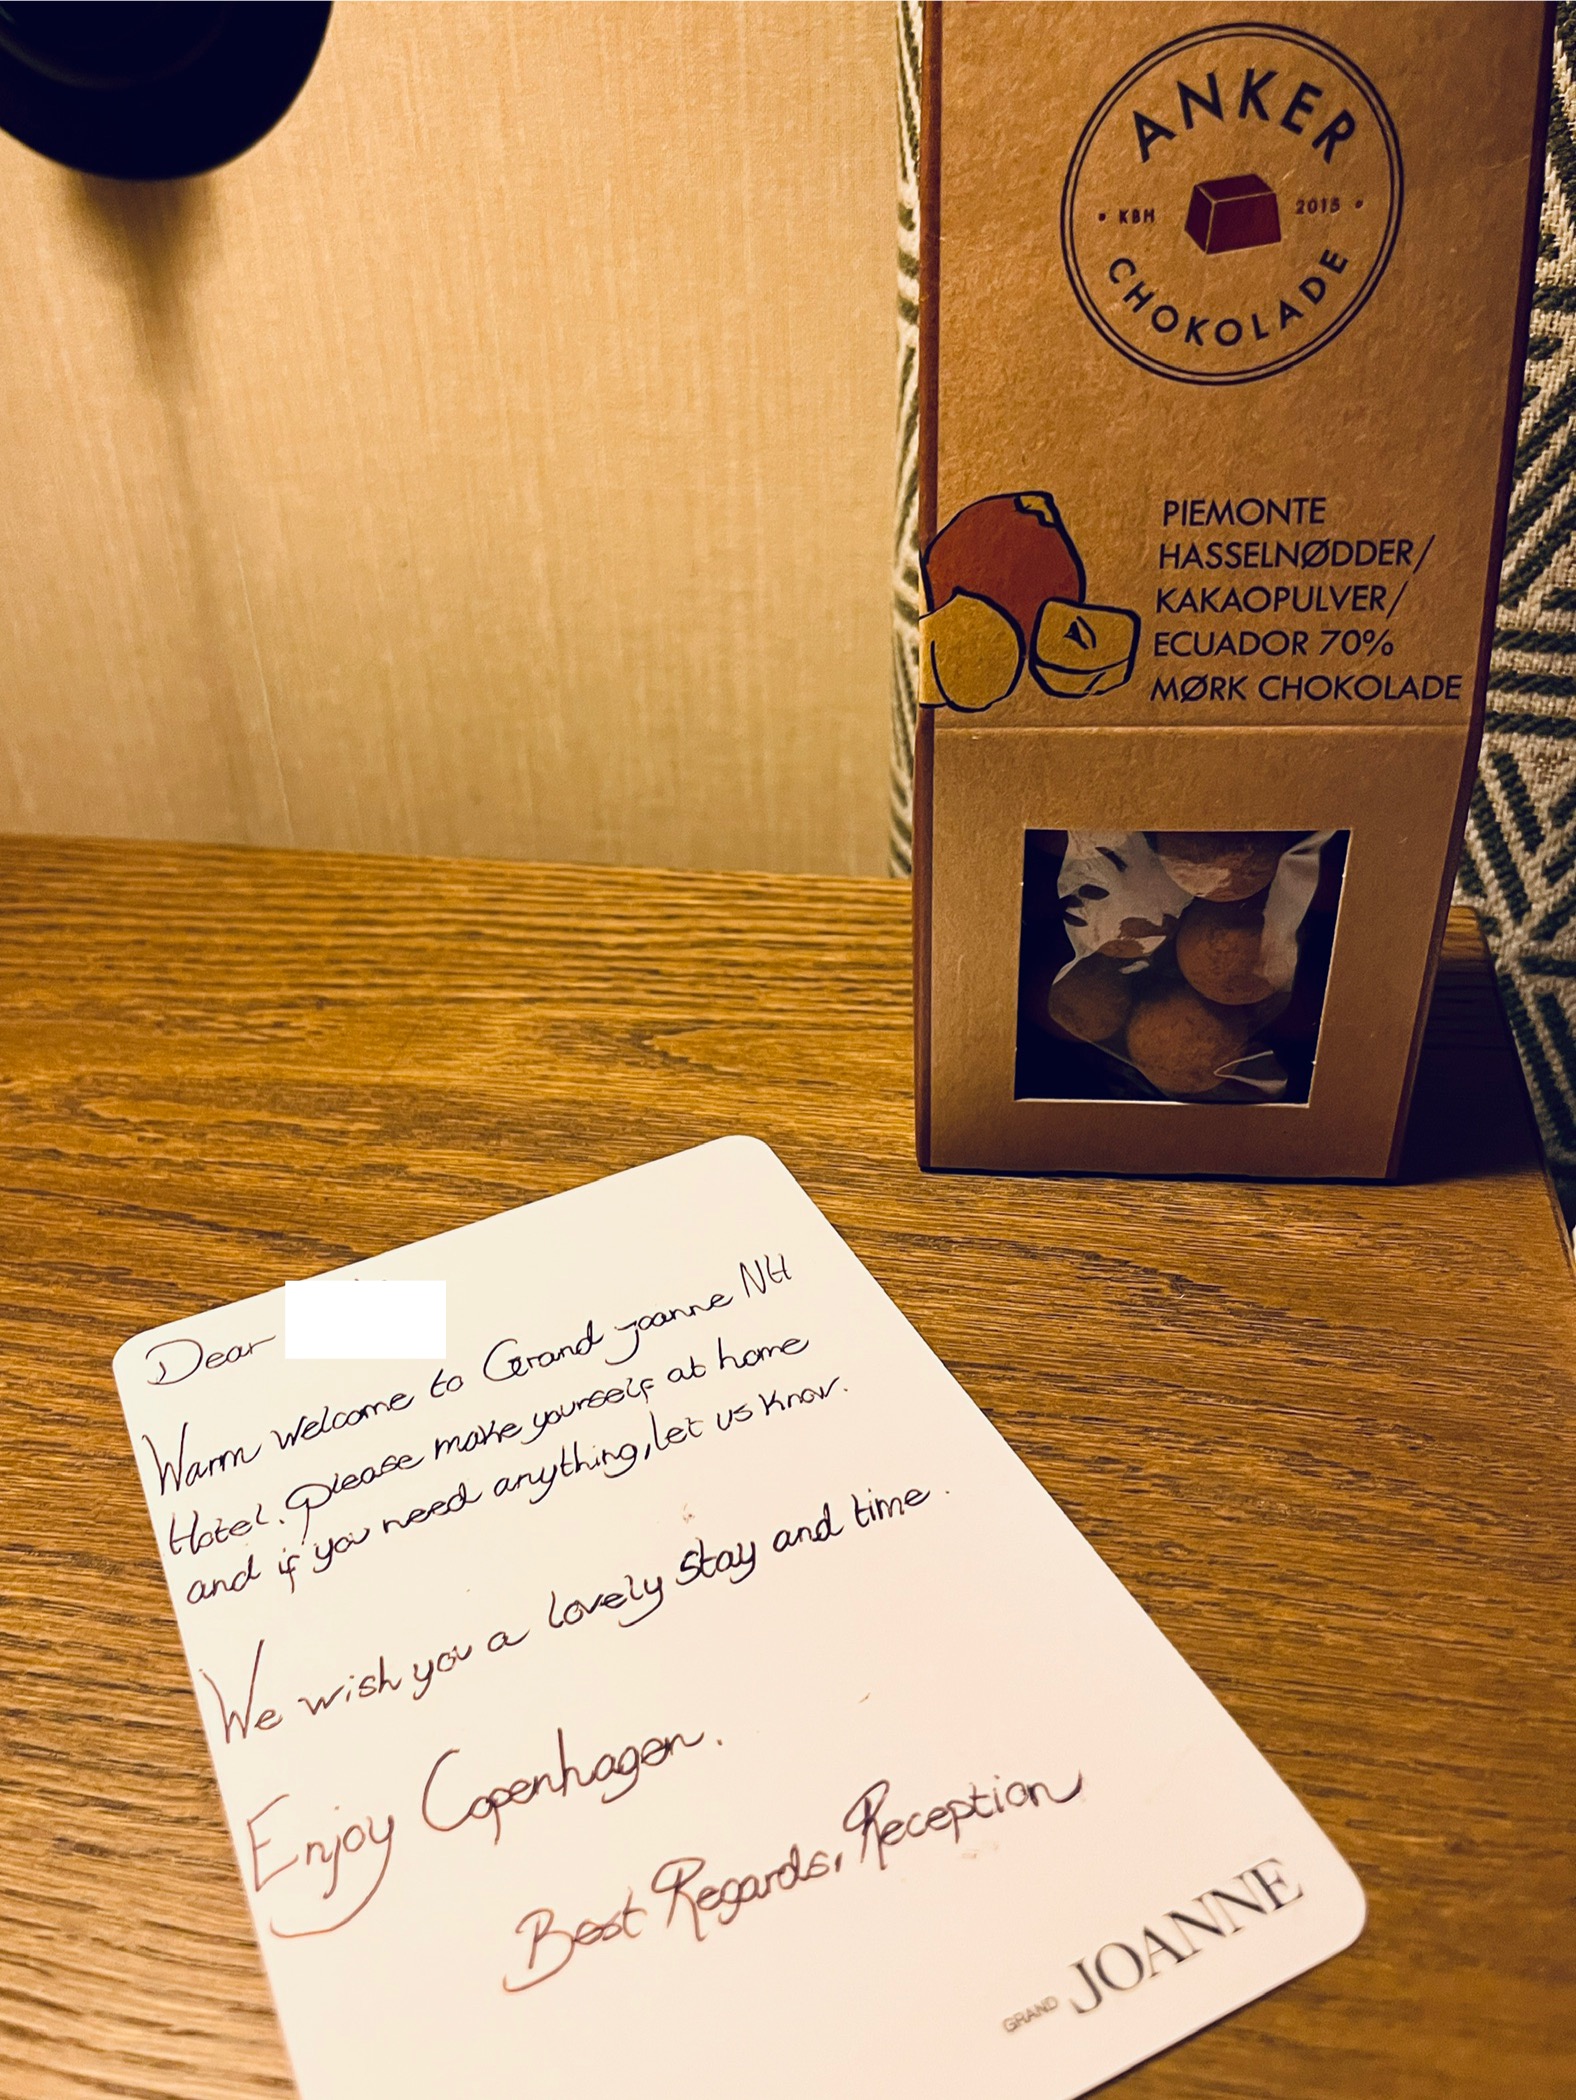 ANKER
KBH 2015
CHOKOLADE
PIEMONTE
HASSELNØDDER/
KAKAOPULVER/
ECUADOR 70%
MØRK CHOKOLADE
Dear
Warm Welcome to Grand Joanne NH
Hotel. Please make yourself at home
and if you need anything, let us know.
We wish you a lovely stay and time.
Enjoy Copenhagen.
Best Regards, Reception
GRAND JOANNE